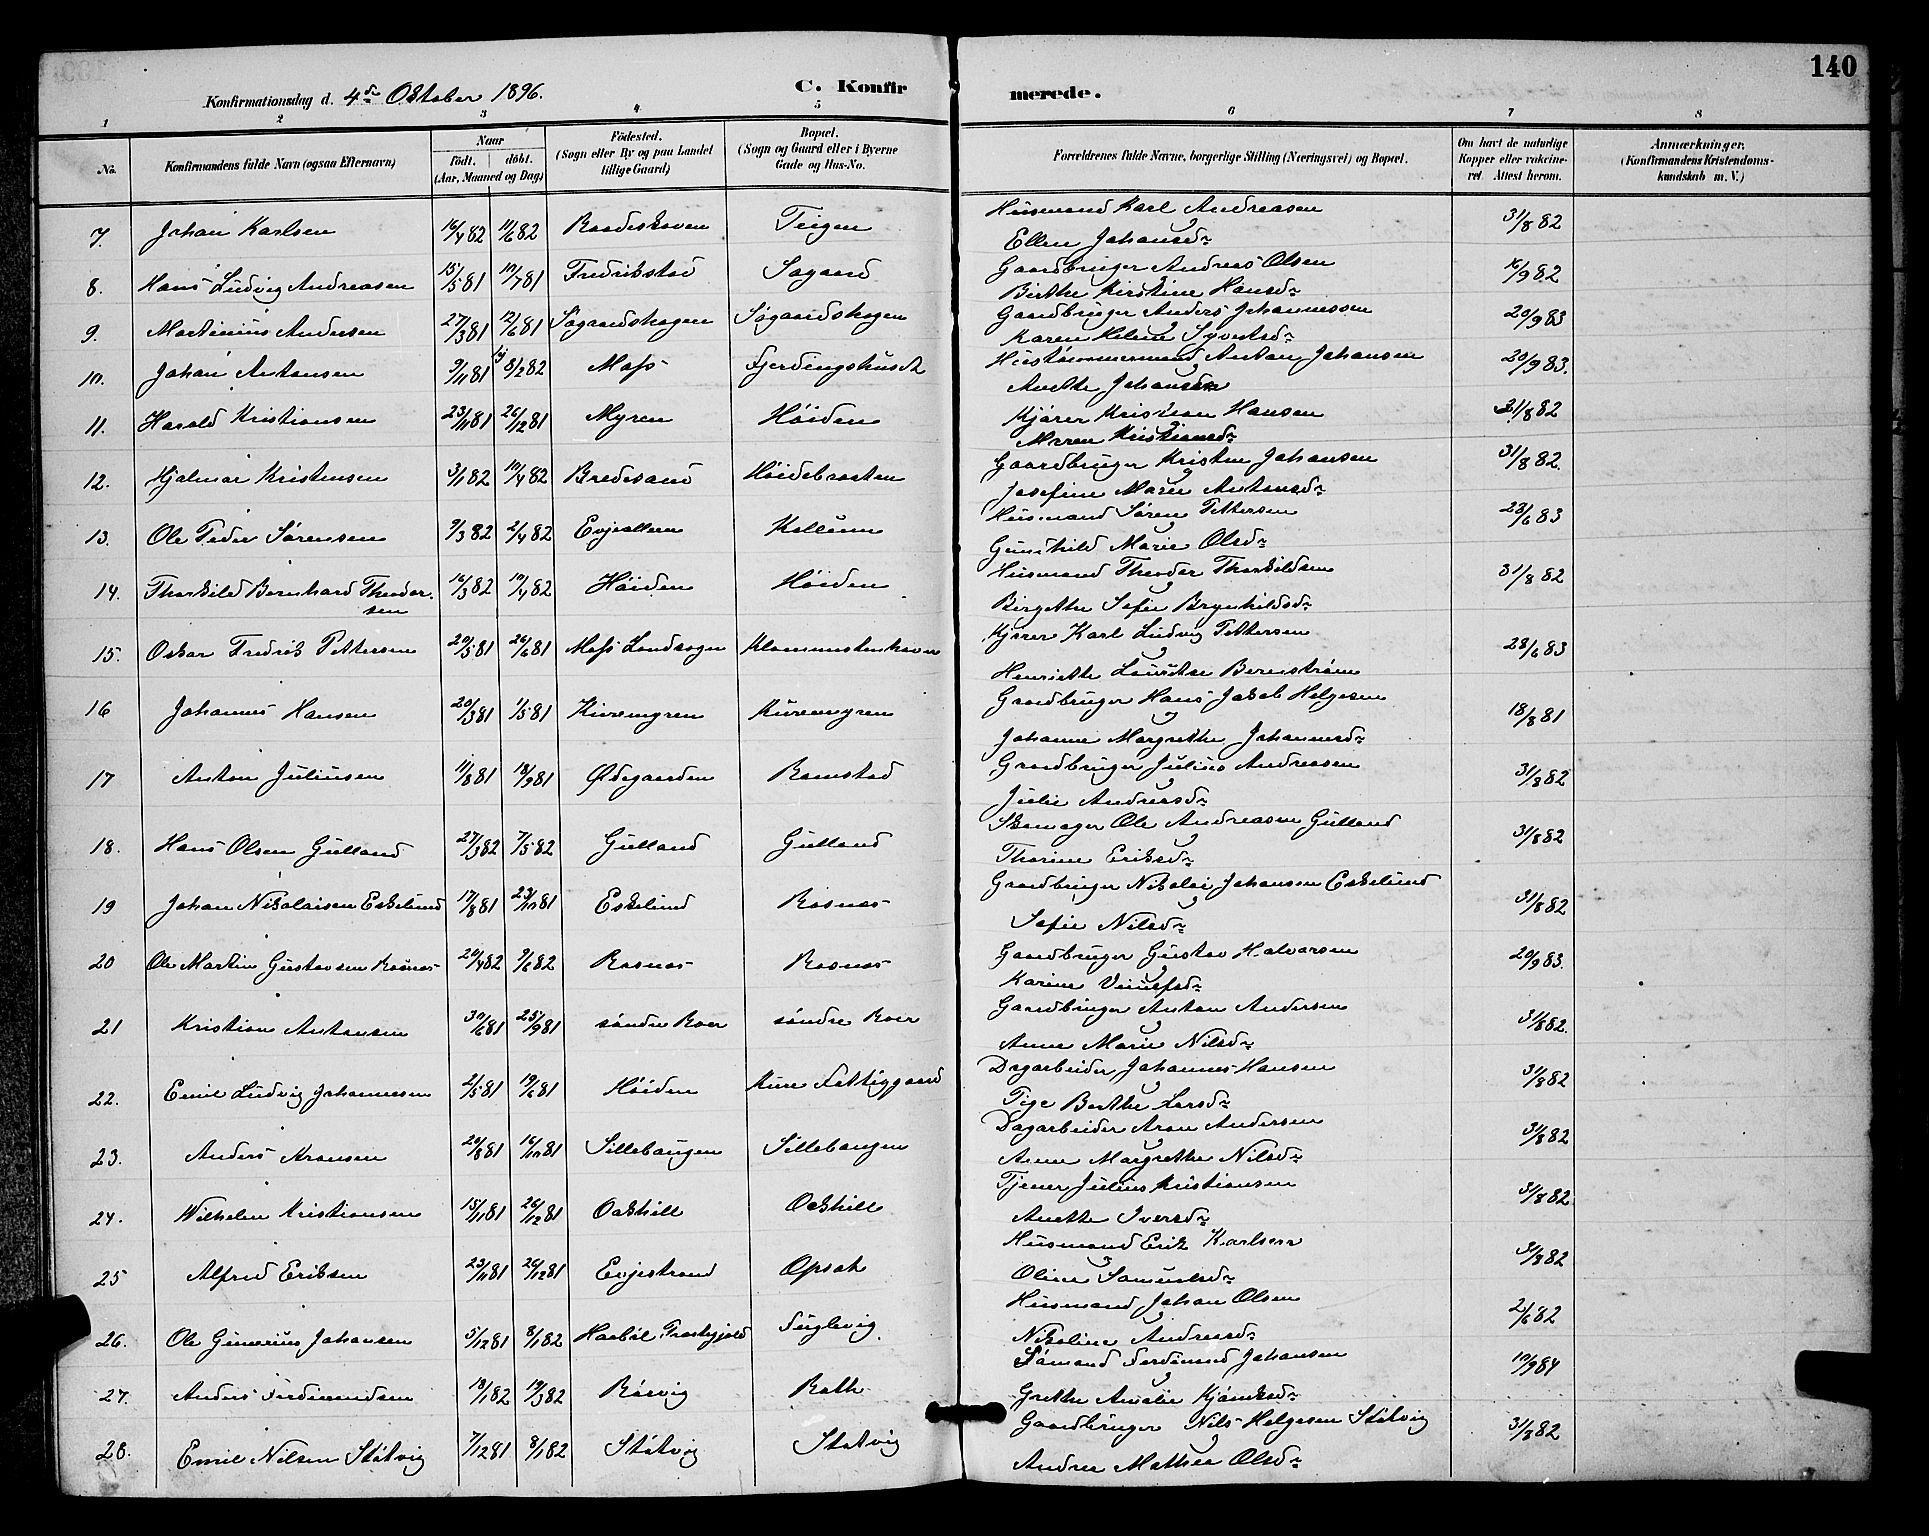 140
Konfirmationsdag d. 4de Oktober 1896. C. Konfirmerede.
1 2 3 4 5 6 7 8
No. Konfirmandens fulde Navn (ogsaa Efternavn) Naar født. døbt. (Aar, Maaned og Dag) Fødested. (Sogn eller By og paa Landet tillige Gaard) Bopæl. (Sogn og Gaard eller i Byerne Gade og Hus-No. Forældrenes fulde Navne, borgerlige Stilling (Næringsvei) og Bopæl. Om havt de naturlige Kopper eller vakcineret. Attest herom. Anmærkninger. (Konfirmandens Kristendomskundskab m. V.)
7. Johan Karlsen 16/4 82 11/6 82 Raadeskoven Teigen Husmand Karl Andreasen 31/8 82
Ellen Johansdr
8. Hans Ludvig Andreasen 15/5 81 10/7 81 Fredrikstad Søgaard Gaardbruger Andreas Olsen 16/9 82
Birthe Kirstine Hansdr
9. Martinius Andersen 27/3 81 12/6 81 Søgaardskogen Søgaardskogen Gaardbruger Anders Johannessen 20/9 83
Karen Helene Syvertsdr
10. Johan Antonsen 9/11 81 8/2 82 Moss Fjerdingshuset Hustømmermand Anton Johansen 20/9 83.
Anette Johansdr
11. Harald Kristiansen 23/11 81 26/12 81 Myren Høiden Kjører Kristian Hansen 31/8 82
Maren Kristiansdr
12. Hjalmar Kristensen 3/1 82 10/4 82 Bredesand Høidebraaten Gaardbruger Kristen Johansen 31/8 82.
Josefine Marie Antonsdr
13. Ole Peder Sørensen 9/3 82 2/4 82 Evjeallern Kollum Husmand Søren Pettersen 28/6 83
Gunhild Marie Olsdr
14. Thorkild Bernhard Theodorsen 16/3 82 10/4 82 Høiden Høiden Husmand Theodor Thorkildsen 31/8 82
Birgethe Sofie Brynhildsdr
15. Oskar Fredrik Pettersen 20/5 81 26/6 81 Moss Landsogn Klommestenhaven Kjører Karl Ludvig Pettersen 28/6 83
Henriette Louise Bernstrøm
16 Johannes Hansen 20/3 81 1/5 81 Kuremyren Kuremyren Gaardbruger Hans Jakob Helgesen 18/8 81
Johanne Margrethe Johannesdr
17 Anton Juliusen 11/8 81 18/9 81 Ødegaarden Ramstad Gaardbruger Julius Andreasen 31/8 82
Julie Andreasdr
18. Hans Olsen Gulland 27/3 82 7/5 82 Gulland Gulland Skomager Ole Andreasen Gulland 31/8 82
Thorine Eriksdr
19 Johan Nikolaisen Eskelund 17/8 81 23/10 81 Eskelund Rosnes Gaardbruger Nikolai Johansen Eskelund 31/8 82
Sofie Nilsdr
20 Ole Martin Gustavsen Rosnes 20/4 82 9/6 82 Rosnes Rosnes Gaardbruger Gustav Halvorsen 20/9 83.
Karine
21 Kristian Antonsen 30/6 81 25/9 81 søndre Roer søndre Roer Gaardbruger Anton Andersen 31/8 82.
Anne Marie Nilsdr
22. Emil Ludvig Johannesen 2/5 81 19/6 81 Høiden Kure Fattiggaard Dagarbeider Johannes Hansen 31/8 82
Pige Berthe Larsdr
23. Anders Aronsen 20/8 81 16/10 81 Sillebaugen Sillebaugen Dagarbeider Aron Andersen 31/8 82
Anne Margrethe Nilsdr
24. Wilhelm Kristiansen 15/11 81 26/12 81 Oakhill Oakhill Tjener Julius Kristiansen 31/8 82
Anette Iversdr
25 Alfred Eriksen 23/11 81 26/12 81 Evjestrand Opsat Husmand Erik Karlsen 31/8 82
Oline Samuelsdr
26. Ole Gunerius Johansen 5/12 81 8/1 82 Haabøl Fuglevig Husmand Johan Olsen 2/6 82
Nikoline Andreasdr
27. Anders Ferdinandsen 18/1 82 19/3 82 Børvig Roth Sømand Ferdinand Johansen 10/9 84
Grethe Amalie
28. Emil Nilsen Støtvig 7/12 81 8/1 82 Støtvig Støtvig Gaardbruger Nils Helgesen Støtvig 31/8 82
Andrea Mathea Olsdr